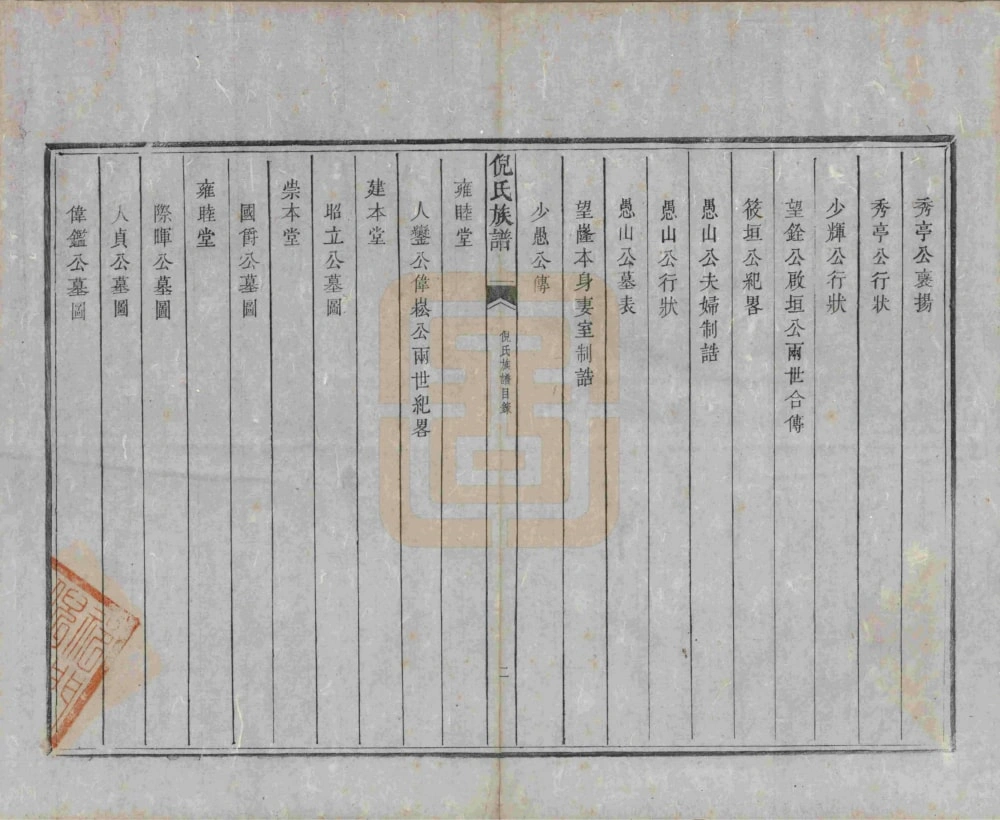 秀亭公襃揚
秀亭公行狀
少輝公行狀
望銓公啟垣公兩世合傳
筱垣公紀畧
愚山公夫婦制誥
愚山公行狀
愚山公墓表
望隆本身妻室制誥
少愚公傳
倪氏族譜
倪氏族譜目錄
二
雍睦堂
人鑾公偉崧公兩世紀畧
建本堂
昭立公墓圖
崇本堂
國爵公墓圖
雍睦堂
際暉公墓圖
人貞公墓圖
偉鑑公墓圖